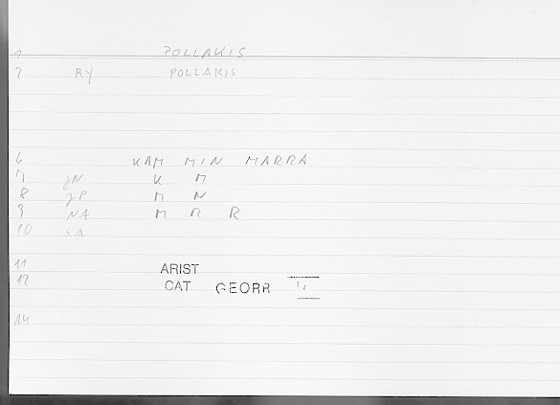 1 POLLAKIS
2 RY POLLAKIS
6 KAM MIN MARRA
7 JN K M
8 JP M N
9 NA M R R
10 SA
11 ARIST
12 CAT GEORR
14